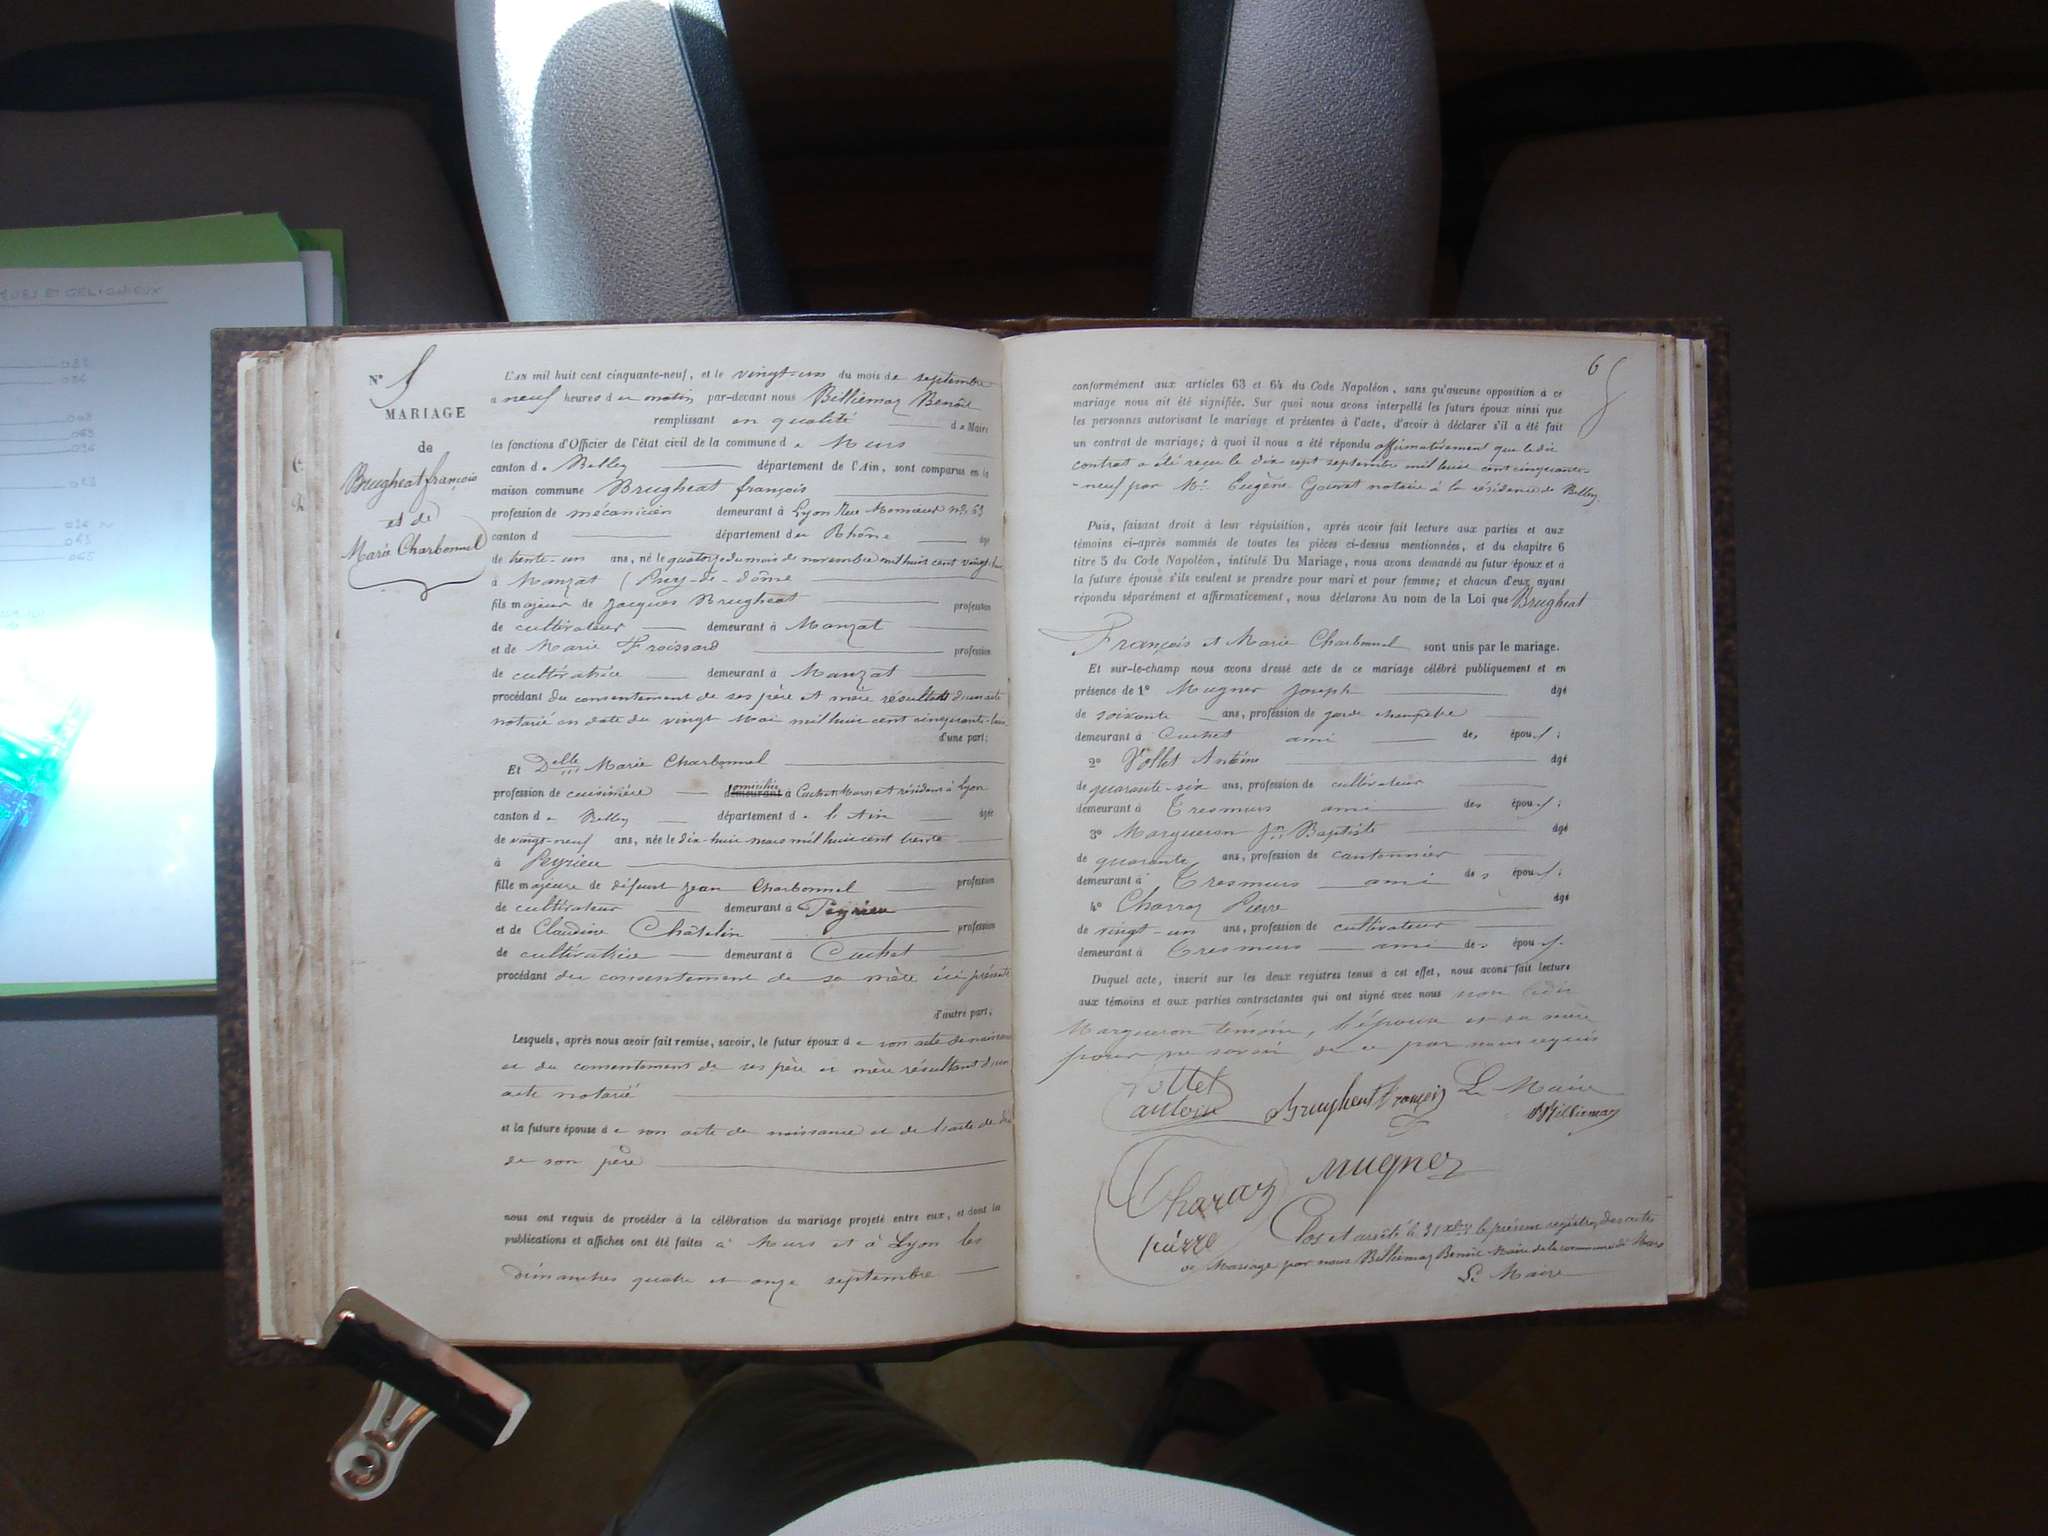 N° 5
MARIAGE
de
Brugheat françois
et de
Marie Charbonnel
L'AN mil huit cent cinquante-neuf, et le vingt-un du mois de septembre
à neuf heures du matin par-devant nous Billiemaz Benoît
remplissant en qualité de Maire
les fonctions d'Officier de l'état civil de la commune de Murs
canton de Belley département de l'Ain, sont comparus en la
maison commune Brugheat françois
profession de mécanicien demeurant à Lyon Rue n° 63
canton d département du Rhône âgé
de trente-un ans, né le quatorze du mois de novembre mil huit cent vingt-huit
à Manzat (Puy-de-dôme
fils majeur de Jacques Brugheat profession
de cultivateur demeurant à Manzat
et de Marie Froissard profession
de cultivatrice demeurant à Manzat
procédant du consentement de ses père et mère résultant d'un acte
notarié en date du vingt Mai mil huit cent cinquante-huit
d'une part;
Et Delle Marie Charbonnel
profession de cuisinière demeurant domiciliée à Cuchet Murs et résidant à Lyon
canton de Belley département de l'Ain âgée
de vingt-neuf ans, née le dix-huit mars mil huit cent trente
à Peyrieu
fille majeure de défunt Jean Charbonnel profession
de cultivateur demeurant à Peyrieu
et de Claudine Châtelin profession
de cultivatrice demeurant à Cuchet
procédant du consentement de sa mère ici présente
d'autre part,
Lesquels, après nous avoir fait remise, savoir, le futur époux de son acte de naissance
et du consentement de ses père et mère résultant d'un
acte notarié
et la future épouse de son acte de naissance et de l'acte de décès
de son père
nous ont requis de procéder à la célébration du mariage projeté entre eux, et dont la
publications et affiches ont été faites à Murs et à Lyon les
dimanches quatre et onze septembre
6
conformément aux articles 63 et 64 du Code Napoléon, sans qu'aucune opposition à ce
mariage nous ait été signifiée. Sur quoi nous avons interpellé les futurs époux ainsi que
les personnes autorisant le mariage et présentes à l'acte, d'avoir à déclarer s'il a été fait
un contrat de mariage; à quoi il nous a été répondu affirmativement que le dit
contrat a été reçu le dix sept septembre mil huit cent cinquante-
-neuf par Me Eugène notaire à la résidence de Belley
Puis, faisant droit à leur réquisition, après avoir fait lecture aux parties et aux
témoins ci-après nommés de toutes les pièces ci-dessus mentionnées, et du chapitre 6
titre 5 du Code Napoléon, intitulé Du Mariage, nous avons demandé au futur époux et à
la future épouse s'ils veulent se prendre pour mari et pour femme; et chacun d'eux ayant
répondu séparément et affirmativement, nous déclarons Au nom de la Loi que Brugheat
François et Marie Charbonnel sont unis par le mariage.
Et sur-le-champ nous avons dressé acte de ce mariage célébré publiquement et en
présence de 1° Mugner Joseph âgé
de soixante ans, profession de garde champêtre
demeurant à Cuchet ami des époux;
2° Vollet Antoine âgé
de quarante-six ans, profession de cultivateur
demeurant à Tresmurs ami des époux;
3° Margueron Jn Baptiste âgé
de quarante ans, profession de cantonnier
demeurant à Tresmurs ami des époux;
4° Charraz Pierre âgé
de vingt-un ans, profession de cultivateur
demeurant à Tresmurs ami des époux.
Duquel acte, inscrit sur les deux registres tenus à cet effet, nous avons fait lecture
aux témoins et aux parties contractantes qui ont signé avec nous non ledit
Margueron témoin, l'épouse et sa mère
pour ne savoir de ce par nous requis
Vollet
antoine
Brugheat François
Le Maire
Billiemaz
Charaz
pierre
Mugner
Clos et arrêté le 31 xbre le présent registre des actes
de Mariage par nous Billiemaz Benoît Maire de la commune de Murs
Le Maire